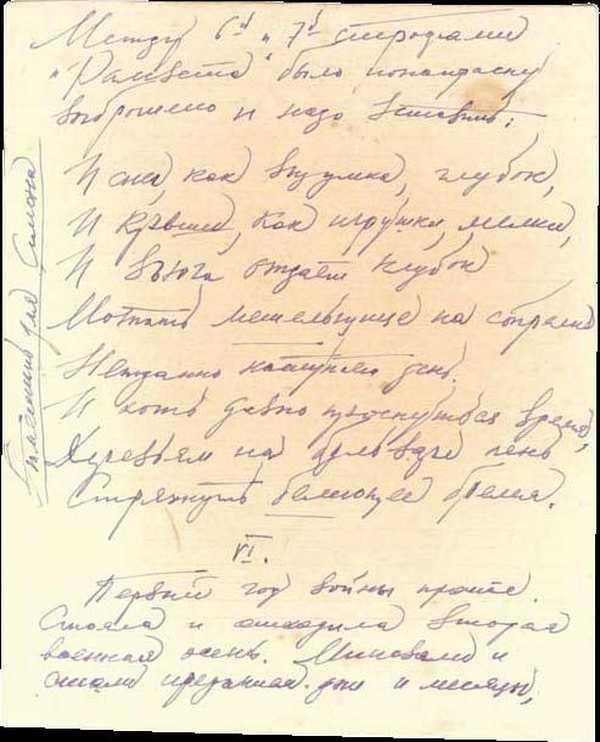 Между 6й и 7й строфами
"Рассвета" было понапрасну
выброшено и надо вставить:
И снег, как выдумка, глубок,
И крыши, как игрушки, мелки,
И вьюга отдает клубок
Мотать метельщице на
Нежданно наступил день.
И хоть давно проснуться время,
Деревьям на бульваре лень
Стряхнуть белеющее бремя.
VI.
Первый год войны прошел.
Стояла и отходила вторая
военная осень. Миновали и
стали преданьем дни и месяцы,
для Симона